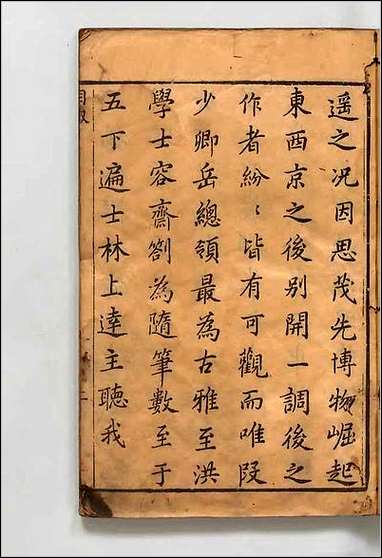 遥之况因思茂先博物崛起
東西京之後别開一調後之
作者紛〻皆有可觀而唯段
少卿岳總領最為古雅至洪
學士容齋劄為隨筆數至于
五下遍士林上逹主聽我